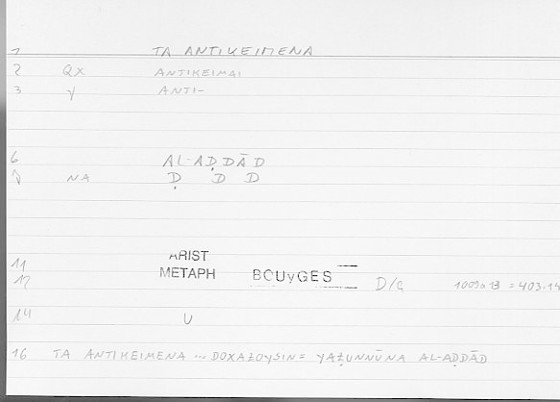 1 TA ANTIKEIMENA
2 QX ANTIKEIMAI
3 γ ANTI-
6 AL-AḌDĀD
NA Ḍ D D
11 ARIST
12 METAPH BOUYGES D/G = 403.14
14 U
16 TA ANTIKEIMENA ... DOXAZOYSIN = YAẒUNNŪNA AL-AḌDĀD